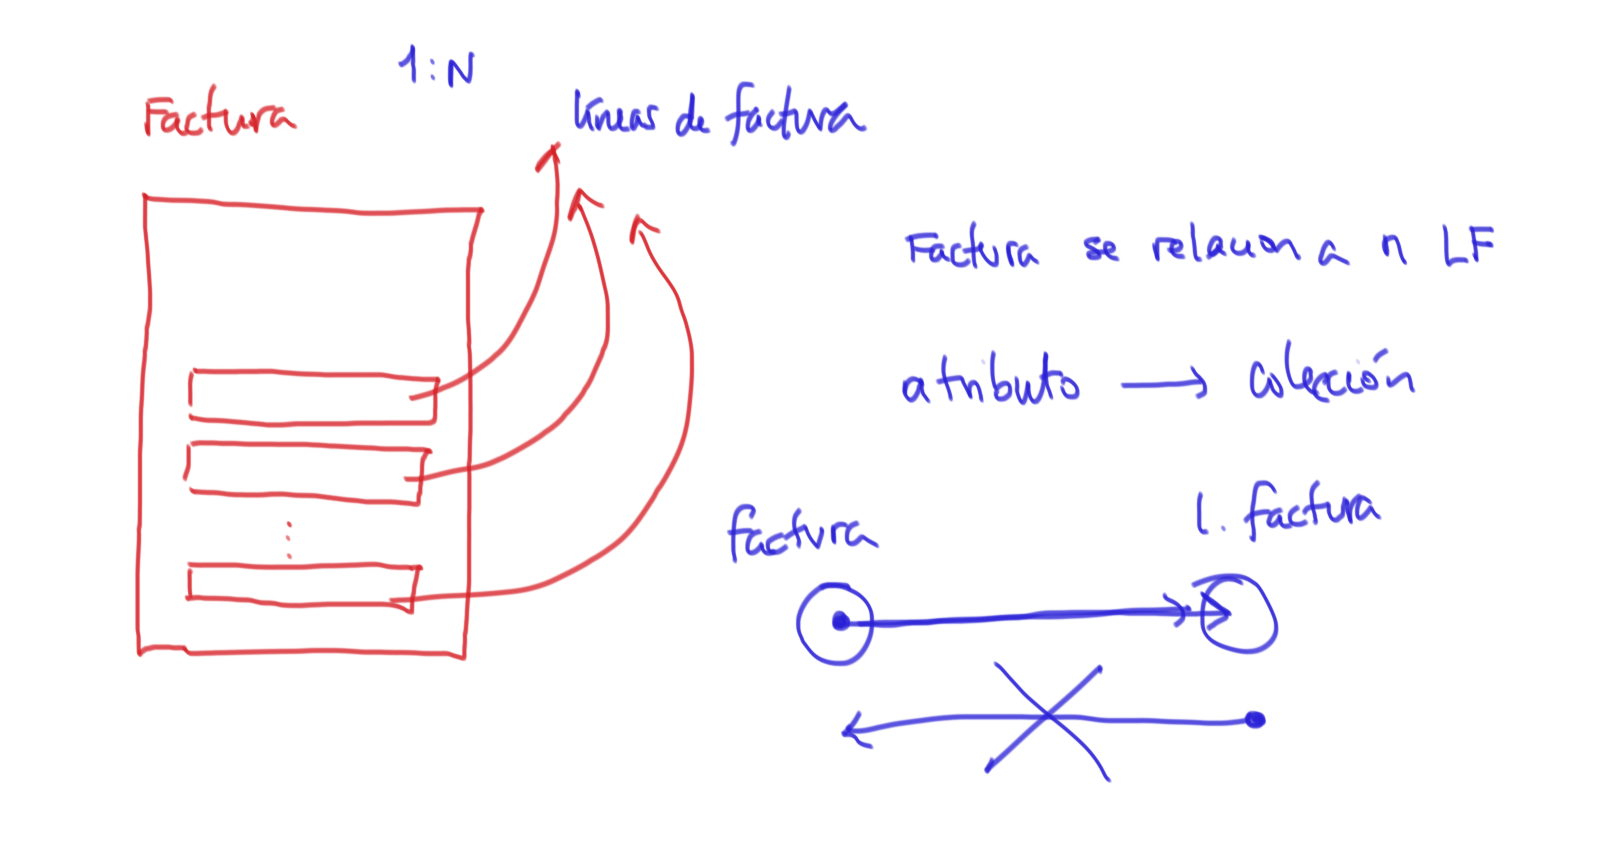 1:N
Factura
líneas de factura
Factura se relaciona a n LF
atributo → colección
factura
l. factura